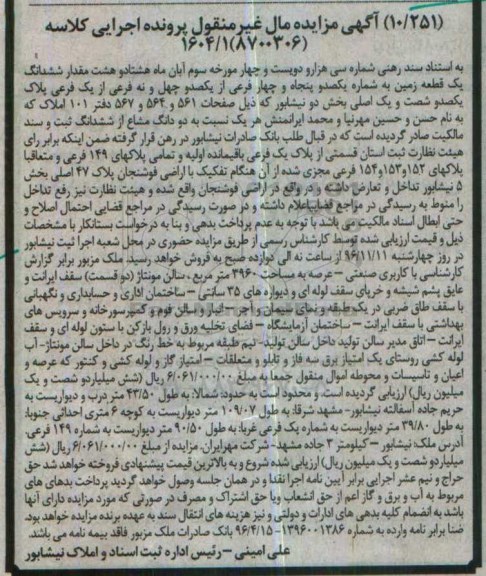 (۱۰/۲۵۱) آگهی مزایده مال غیر منقول پرونده اجرایی کلاسه
(۸۷۰۰۳۰۶)۱۶۰۴/۱
به استناد سند رهنی شماره سی هزارو دویست و چهار مورخه سوم آبان ماه هشتادو هشت مقدار ششدانگ
یک قطعه زمین به شماره یکصدو پنجاه و چهار فرعی از یکصدو چهل و نه فرعی از یک فرعی پلاک
یکصدو شصت و یک اصلی بخش دو نیشابور که ذیل صفحات ۵۶۱ و ۵۶۴ و ۵۶۷ دفتر ۱۰۱ املاک که
به نام حسن و حسین مهرنیا و محمد ایرانمنش هر یک نسبت به دو دانگ مشاع از ششدانگ ثبت و سند
مالکیت صادر گردیده است که در قبال طلب بانک صادرات نیشابور در رهن قرار گرفته ضمن اینکه برابر رای
هیئت نظارت ثبت استان قسمتی از پلاک یک فرعی باقیمانده اولیه و تمامی پلاکهای ۱۴۹ فرعی و متعاقبا
پلاکهای ۱۵۲و۱۵۳و۱۵۴ فرعی مجزی شده از آن هنگام تفکیک با اراضی فوشنجان پلاک ۴۷ اصلی بخش
۵ نیشابور تداخل و تعارض داشته و در واقع در اراضی فوشنجان واقع شده و هیئت نظارت نیز رفع تداخل
را منوط به رسیدگی در مراجع قضایی اعلام داشته و در صورت رسیدگی در مراجع قضایی احتمال اصلاح و
حتی ابطال اسناد مالکیت می باشد با توجه به عدم پرداخت بدهی و بنا به درخواست بستانکار با مشخصات
ذیل و قیمت ارزیابی شده توسط کارشناس رسمی از طریق مزایده حضوری در محل شعبه اجرا ثبت نیشابور
در روز چهارشنبه ۹۶/۱۱/۱۱ از ساعت نه الی دوازده صبح به فروش خواهد رسید: ملک مزبور برابر گزارش
کارشناسی با کاربری صنعتی – عرصه به مساحت ۳۹۶۰ متر مربع ، سالن مونتاژ (دو قسمت) سقف ایرانت و
عایق پشم شیشه و خرپای سقف لوله ای و دیواره های ۳۵ سانتی – ساختمان اداری و حسابداری و نگهبانی
با سقف طاق ضربی در یک طبقه و نمای سیمان و آجر – انبار و سالن فوم و کمپرسورخانه و سرویس های
بهداشتی با سقف ایرانت – ساختمان آزمایشگاه – فضای تخلیه ورق و رول بازکن با ستون لوله ای و سقف
ایرانت – اتاق مدیر سالن تولید داخل سالن تولید- نیم طبقه مربوط به خط رنگ در داخل سالن مونتاژ – آب
لوله کشی روستای یک امتیاز برق سه فاز و تابلو و متعلقات – امتیاز گاز و لوله کشی و کنتور که عرصه و
اعیان و تاسیسات و محوطه اموال منقول جمعا به مبلغ ۶/۰۶۱/۰۰۰/۰۰۰ ریال (شش میلیاردو شصت و یک
میلیون ریال) ارزیابی گردیده است. و محدود است به حدود: شمالا: به طول ۴۳/۵۰ متر درب و دیواریست به
حریم جاده آسفالته نیشابور- مشهد شرقا: به طول ۱۰۹/۰۷ متر دیواریست به کوچه ۶ متری احداثی جنوبا:
به طول ۳۹/۸۰ متر دیواریست به شماره یک فرعی غربا: به طول ۹۰/۵۰ متر دیواریست به شماره ۱۴۹ فرعی.
آدرس ملک: نیشابور – کیلومتر ۳ جاده مشهد- شرکت مهرایران. مزایده از مبلغ ۶/۰۶۱/۰۰۰/۰۰ ریال (شش
میلیاردو شصت و یک میلیون ریال) ارزیابی شده شروع و به بالاترین قیمت پیشنهادی فروخته خواهد شد حق
حراج و نیم عشر اجرایی برابر آیین نامه اجرا نقدا و در همان جلسه وصول خواهد گردید پرداخت بدهی های
مربوط به آب و برق و گاز اعم از حق انشعاب ویا حق اشتراک و مصرف در صورتی که مورد مزایده دارای آنها
باشد به انضمام کلیه بدهی های ادارات و دولتی و نیز هزینه های انتقال سند به عهده برنده مزایده خواهد بود.
ضنا برابر نامه وارده به شماره ۱۳۹۶۰۰۱۳۸۶- ۹۶/۴/۱۵ بانک صادرات ملک مزبور فاقد بیمه نامه می باشد.
علی امینی – رئیس اداره ثبت اسناد و املاک نیشابور